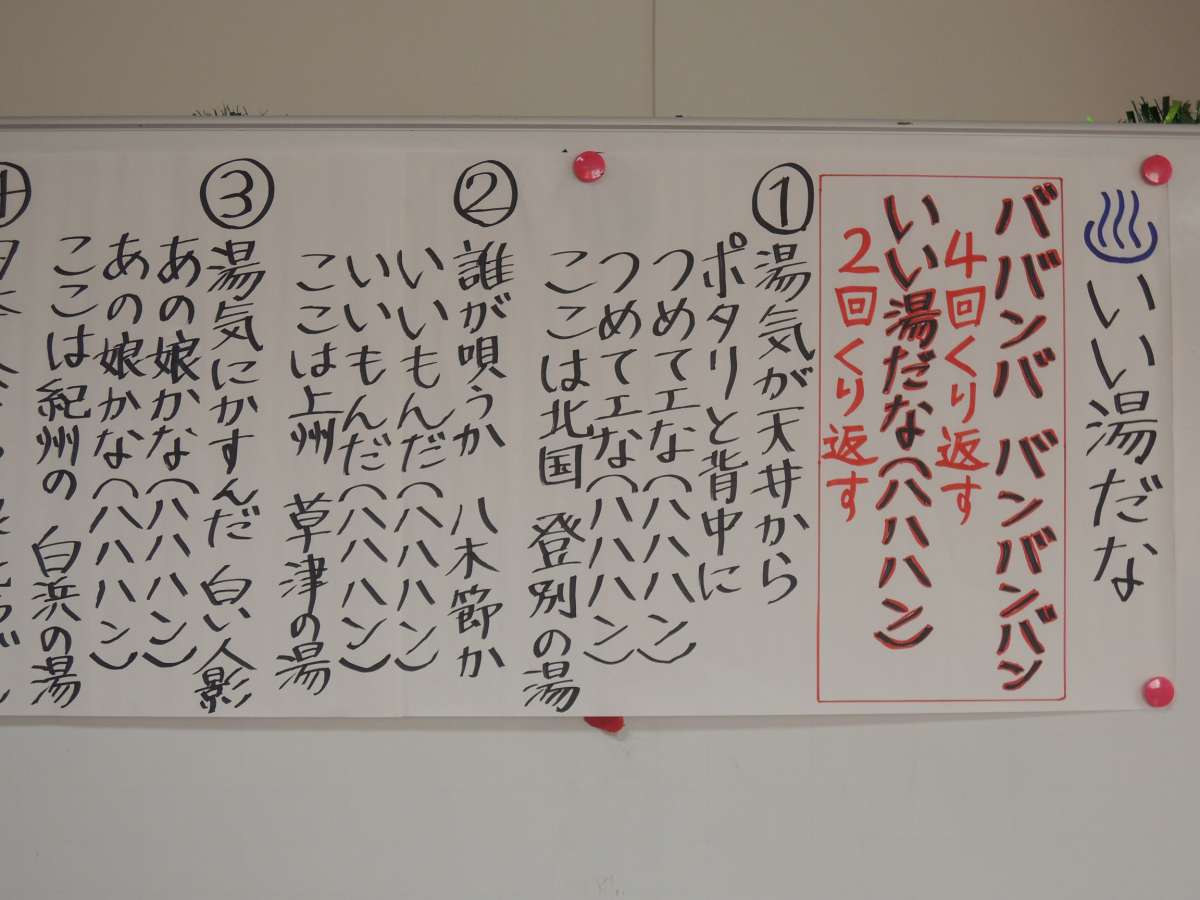 ♨ いい湯だな
ババンバ バンバンバン
4回くり返す
いい湯だな(ハハハン)
2回くり返す
① 湯気が天井から
ポタリと背中に
つめてエな(ハハハン)
つめてエな(ハハハン)
ここは北国 登別の湯
② 誰が唄うか 八木節か
いいもんだ(ハハハン)
いいもんだ(ハハハン)
ここは上州 草津の湯
③ 湯気にかすんだ 白い人影
あの娘かな(ハハハン)
あの娘かな(ハハハン)
ここは紀州の 白浜の湯